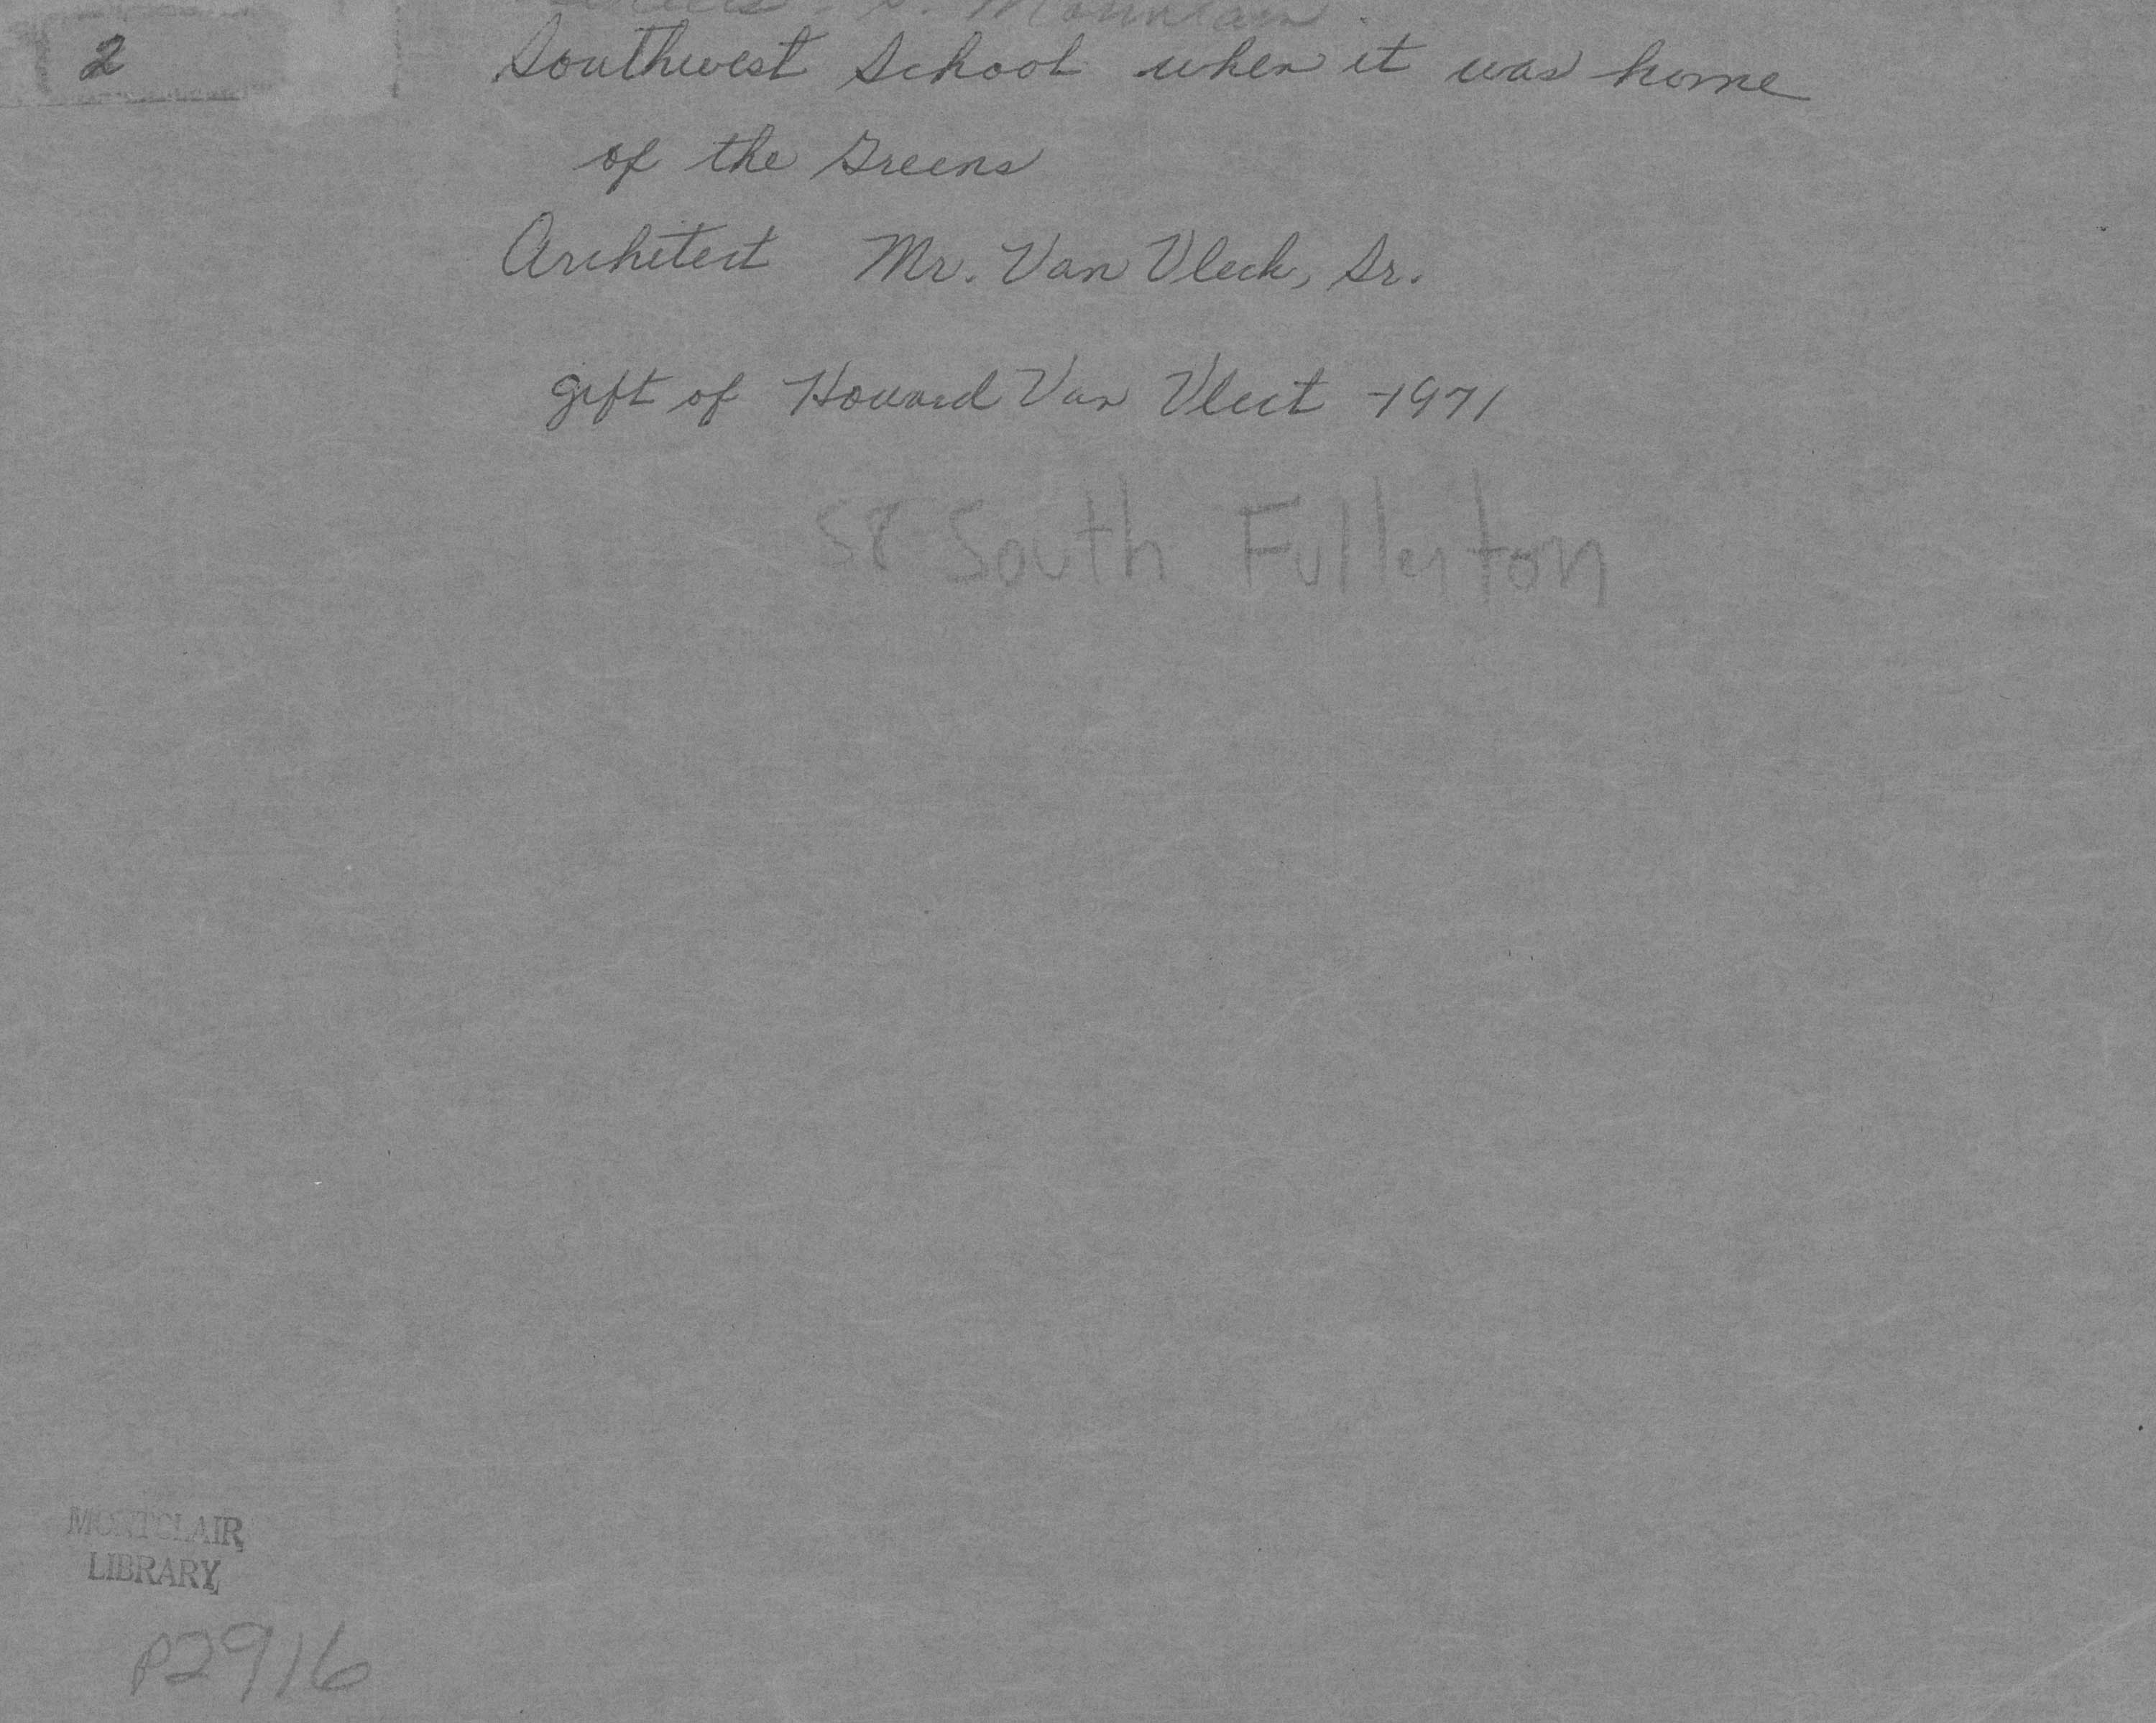 S. Mountain
2
Southwest School when it was home
of the Greens
Architect Mr. Van Vleck, Sr.
gift of Howard Van Vlect -1971
58 South Fullerton
MONTCLAIR
LIBRARY
P2916